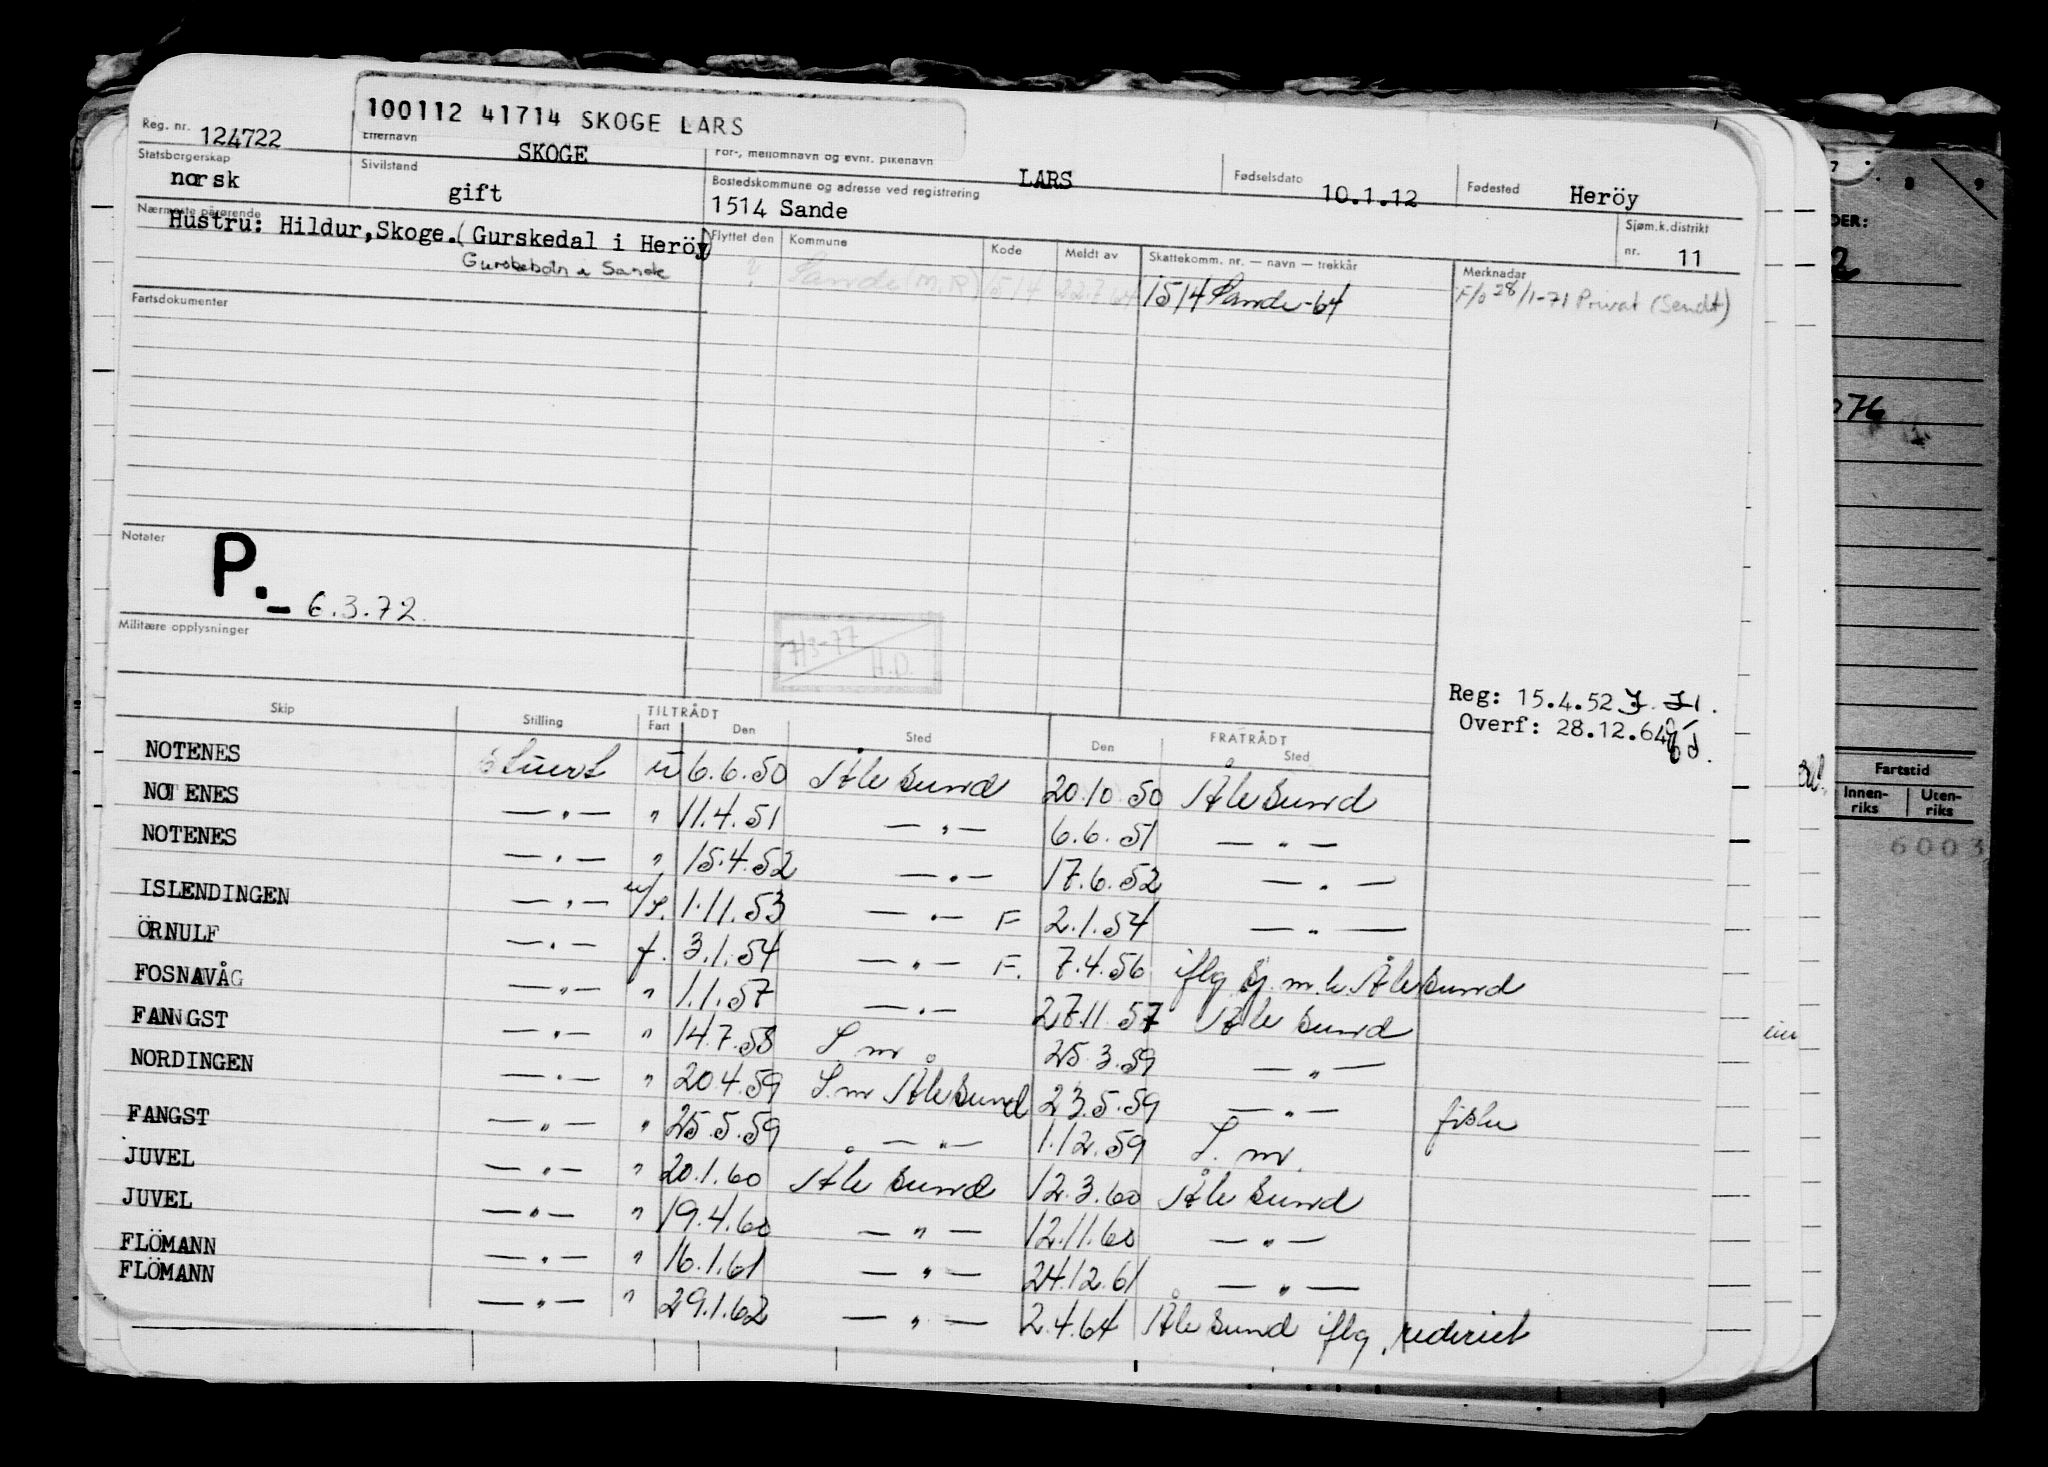 100112 41714 SKOGE LARS
Reg. nr. 124722
Etternavn SKOGE
For-, mellomnavn og evnt. pikenavn LARS
Fødselsdato 10.1.12
Fødested Heröy
Statsborgerskap norsk
Sivilstand gift
Bostedskommune og adresse ved registrering
1514 Sande
Sjøm.k.distrikt nr. 11
Nærmeste pårørende
Hustru: Hildur,Skoge.(Gurskedal i Heröy)
Gurskebotn i Sande
Flyttet den Kommune Kode Meldt av Skattekomm. nr. — navn — trekkår Merknader
? Sande (M.R) 1514 22.7.64 1514 Sande-64 F/o 28/1-71 Privat (Sendt)
Fartsdokumenter
Notater
P.- 6.3.72.
Militære opplysninger
7/3-77
H.D.
Reg: 15.4.52
Overf: 28.12.64
Skip Stilling TILTRÅDT Fart Den Sted FRATRÅDT Den Sted
NOTENES Stuert u 6.6.50 Ålesund 20.10.50 Ålesund
NOTENES — " — " 11.4.51 — " — 6.6.51 — " —
NOTENES — " — " 15.4.52 — " — 17.6.52 — " —
ISLENDINGEN — " — 1.11.53 — " — F 2.1.54 — " —
ÖRNULF — " — f. 3.1.54 — " — F. 7.4.56 iflg Sj.m.k. Ålesund
FOSNAVÅG — " — " 1.1.57 — " — 27.11.57 Ålesund
FANGST — " — " 14.7.58 S.m. 25.3.59 — " —
NORDINGEN — " — " 20.4.59 S.m Ålesund 23.5.59 — " — fiske
FANGST — " — " 25.5.59 — " — 1.12.59 S.m.
JUVEL — " — " 20.1.60 Ålesund 12.3.60 Ålesund
JUVEL — " — " 19.4.60 — " — 12.11.60 — " —
FLÖMANN — " — " 16.1.61 — " — 24.12.61 — " —
FLÖMANN — " — " 29.1.62 — " — 2.4.64 Ålesund iflg. rederiet
DER:
2
076
Fartstid
Innen-riks Uten-riks
6003